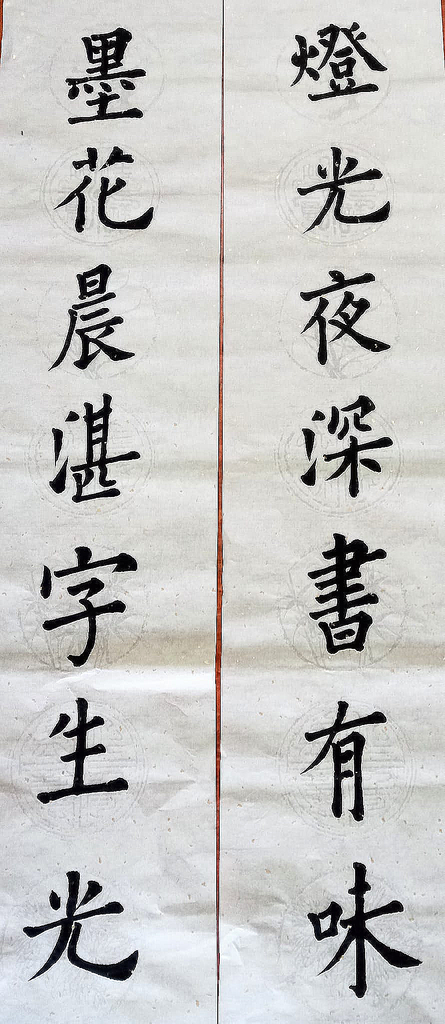 燈光夜深書有味
墨花晨湛字生光